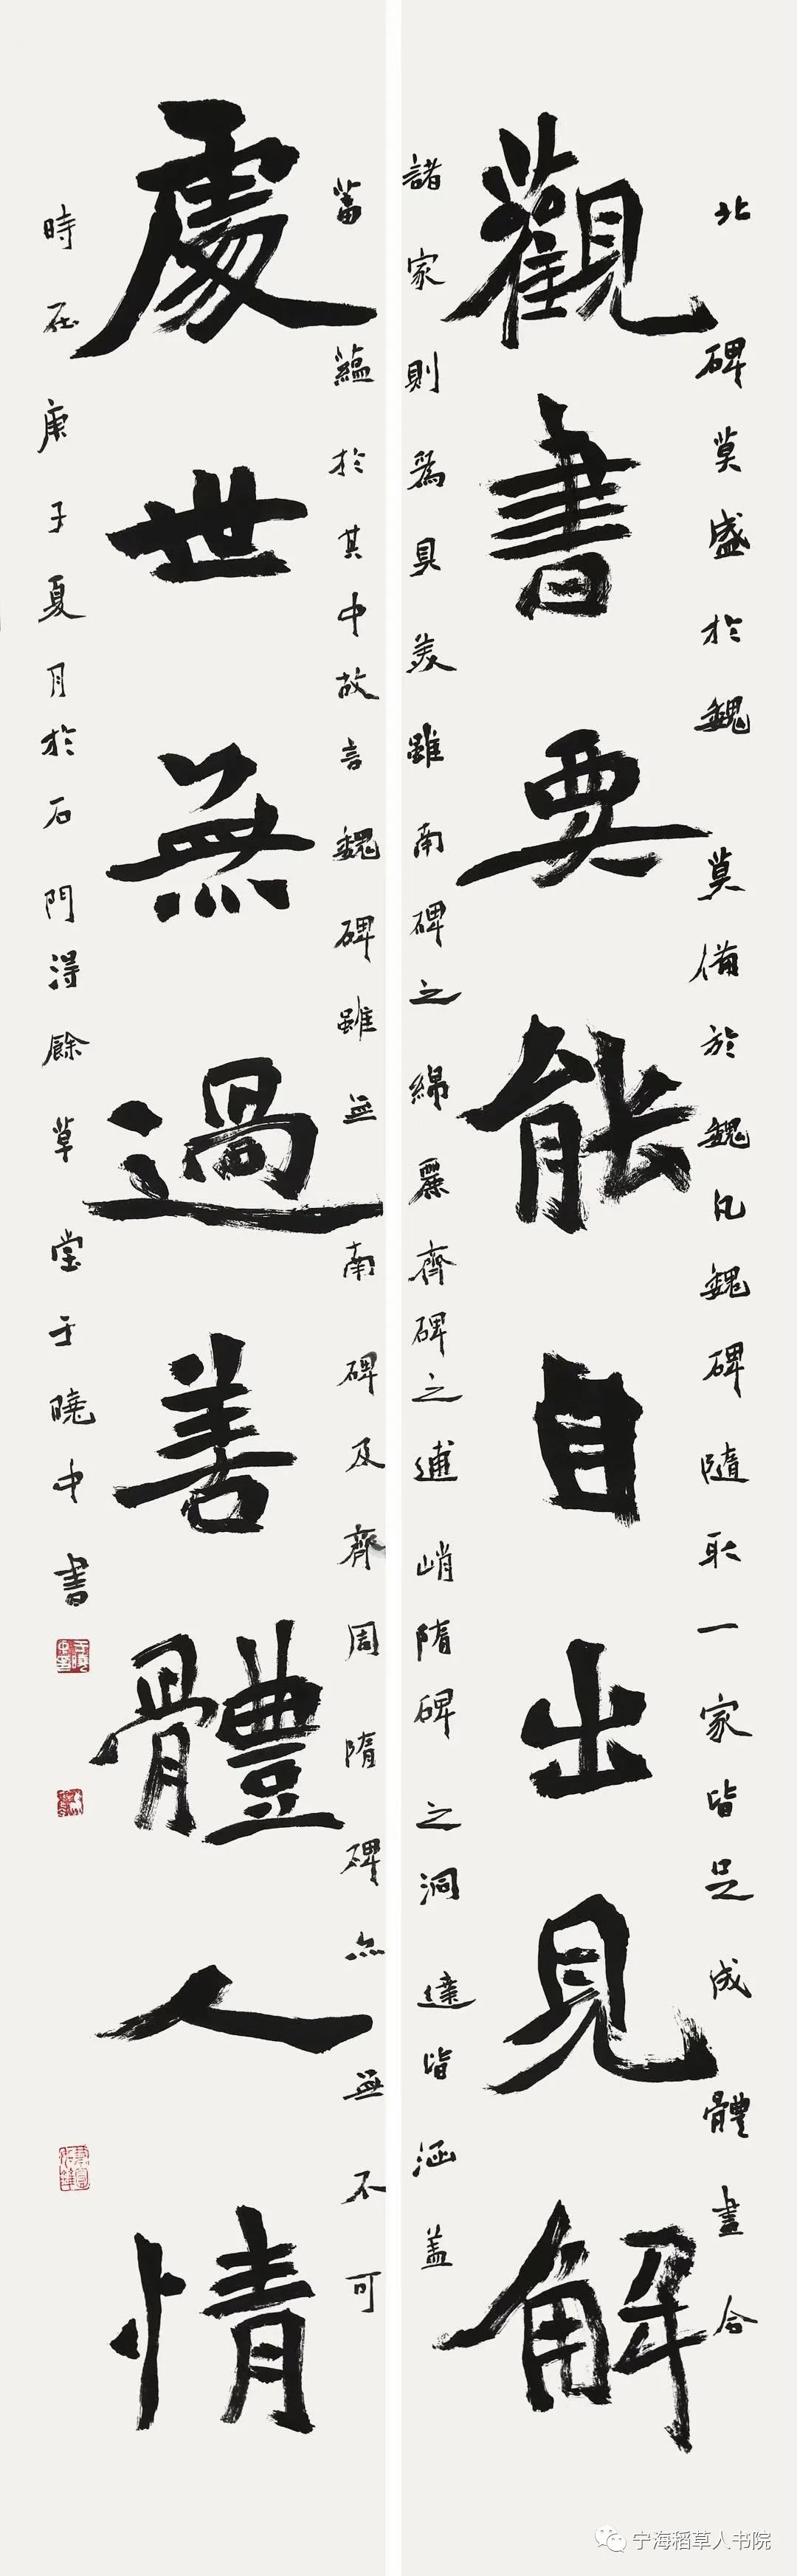 北碑莫盛於魏莫備於魏凡魏碑隨取一家皆足成體盡合
觀書要能自出見解
諸家則爲具美雖南碑之綿麗齊碑之逋峭隋碑之洞達皆涵盖
蓄蘊於其中故言魏碑雖無南碑及齊周隋碑亦無不可
處世無過善體人情
時在庚子夏月於石門得餘草堂于曉中書
宁海稻草人书院